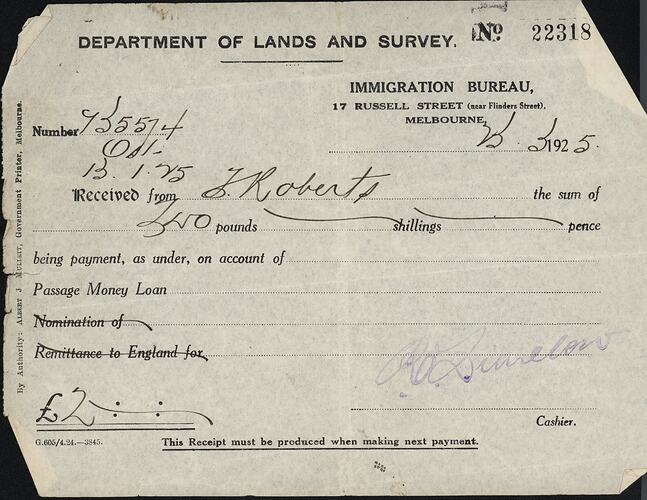 DEPARTMENT OF LANDS AND SURVEY. No 22318
IMMIGRATION BUREAU,
17 RUSSELL STREET (near Flinders Street),
MELBOURNE, 1925.
Number
13.1.25
Received from J. Roberts the sum of
Two pounds shillings pence
being payment, as under, on account of
Passage Money Loan
Nomination of
Remittance to England for
£2 : :
Cashier.
G.605/4.24.—3845. This Receipt must be produced when making next payment.
By Authority: ALBERT J. MULLETT, Government Printer, Melbourne.